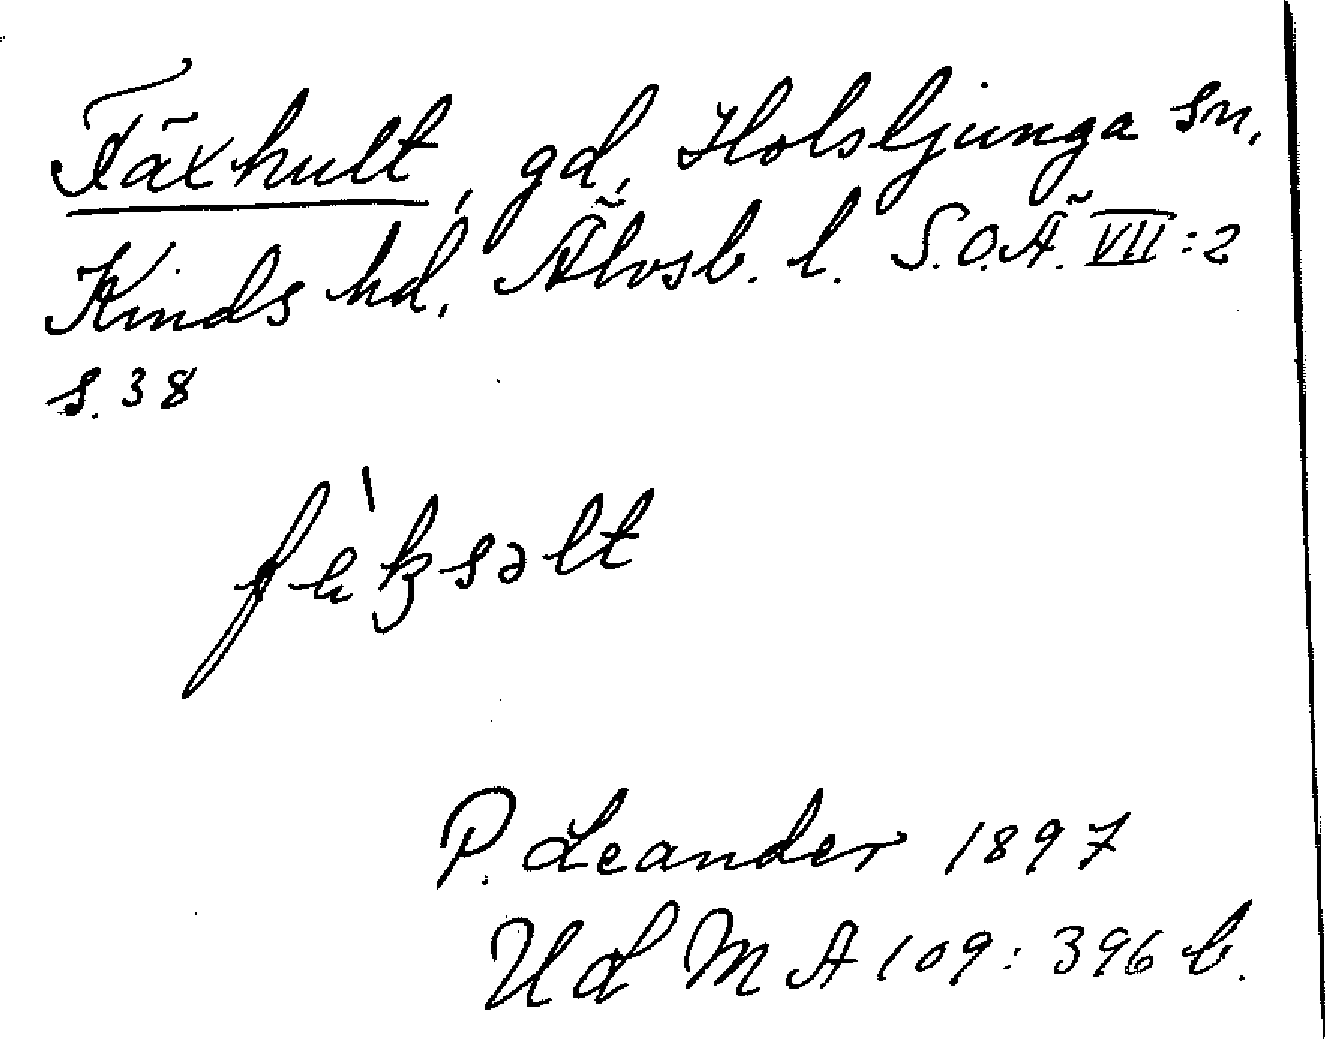 Fäxhult, gd, Holsljunga sn,
Kinds hd, Älvsb. l. S.O.Ä. VII:2
s. 38
P. Leander 1897
Ud M A 109: 396 b.